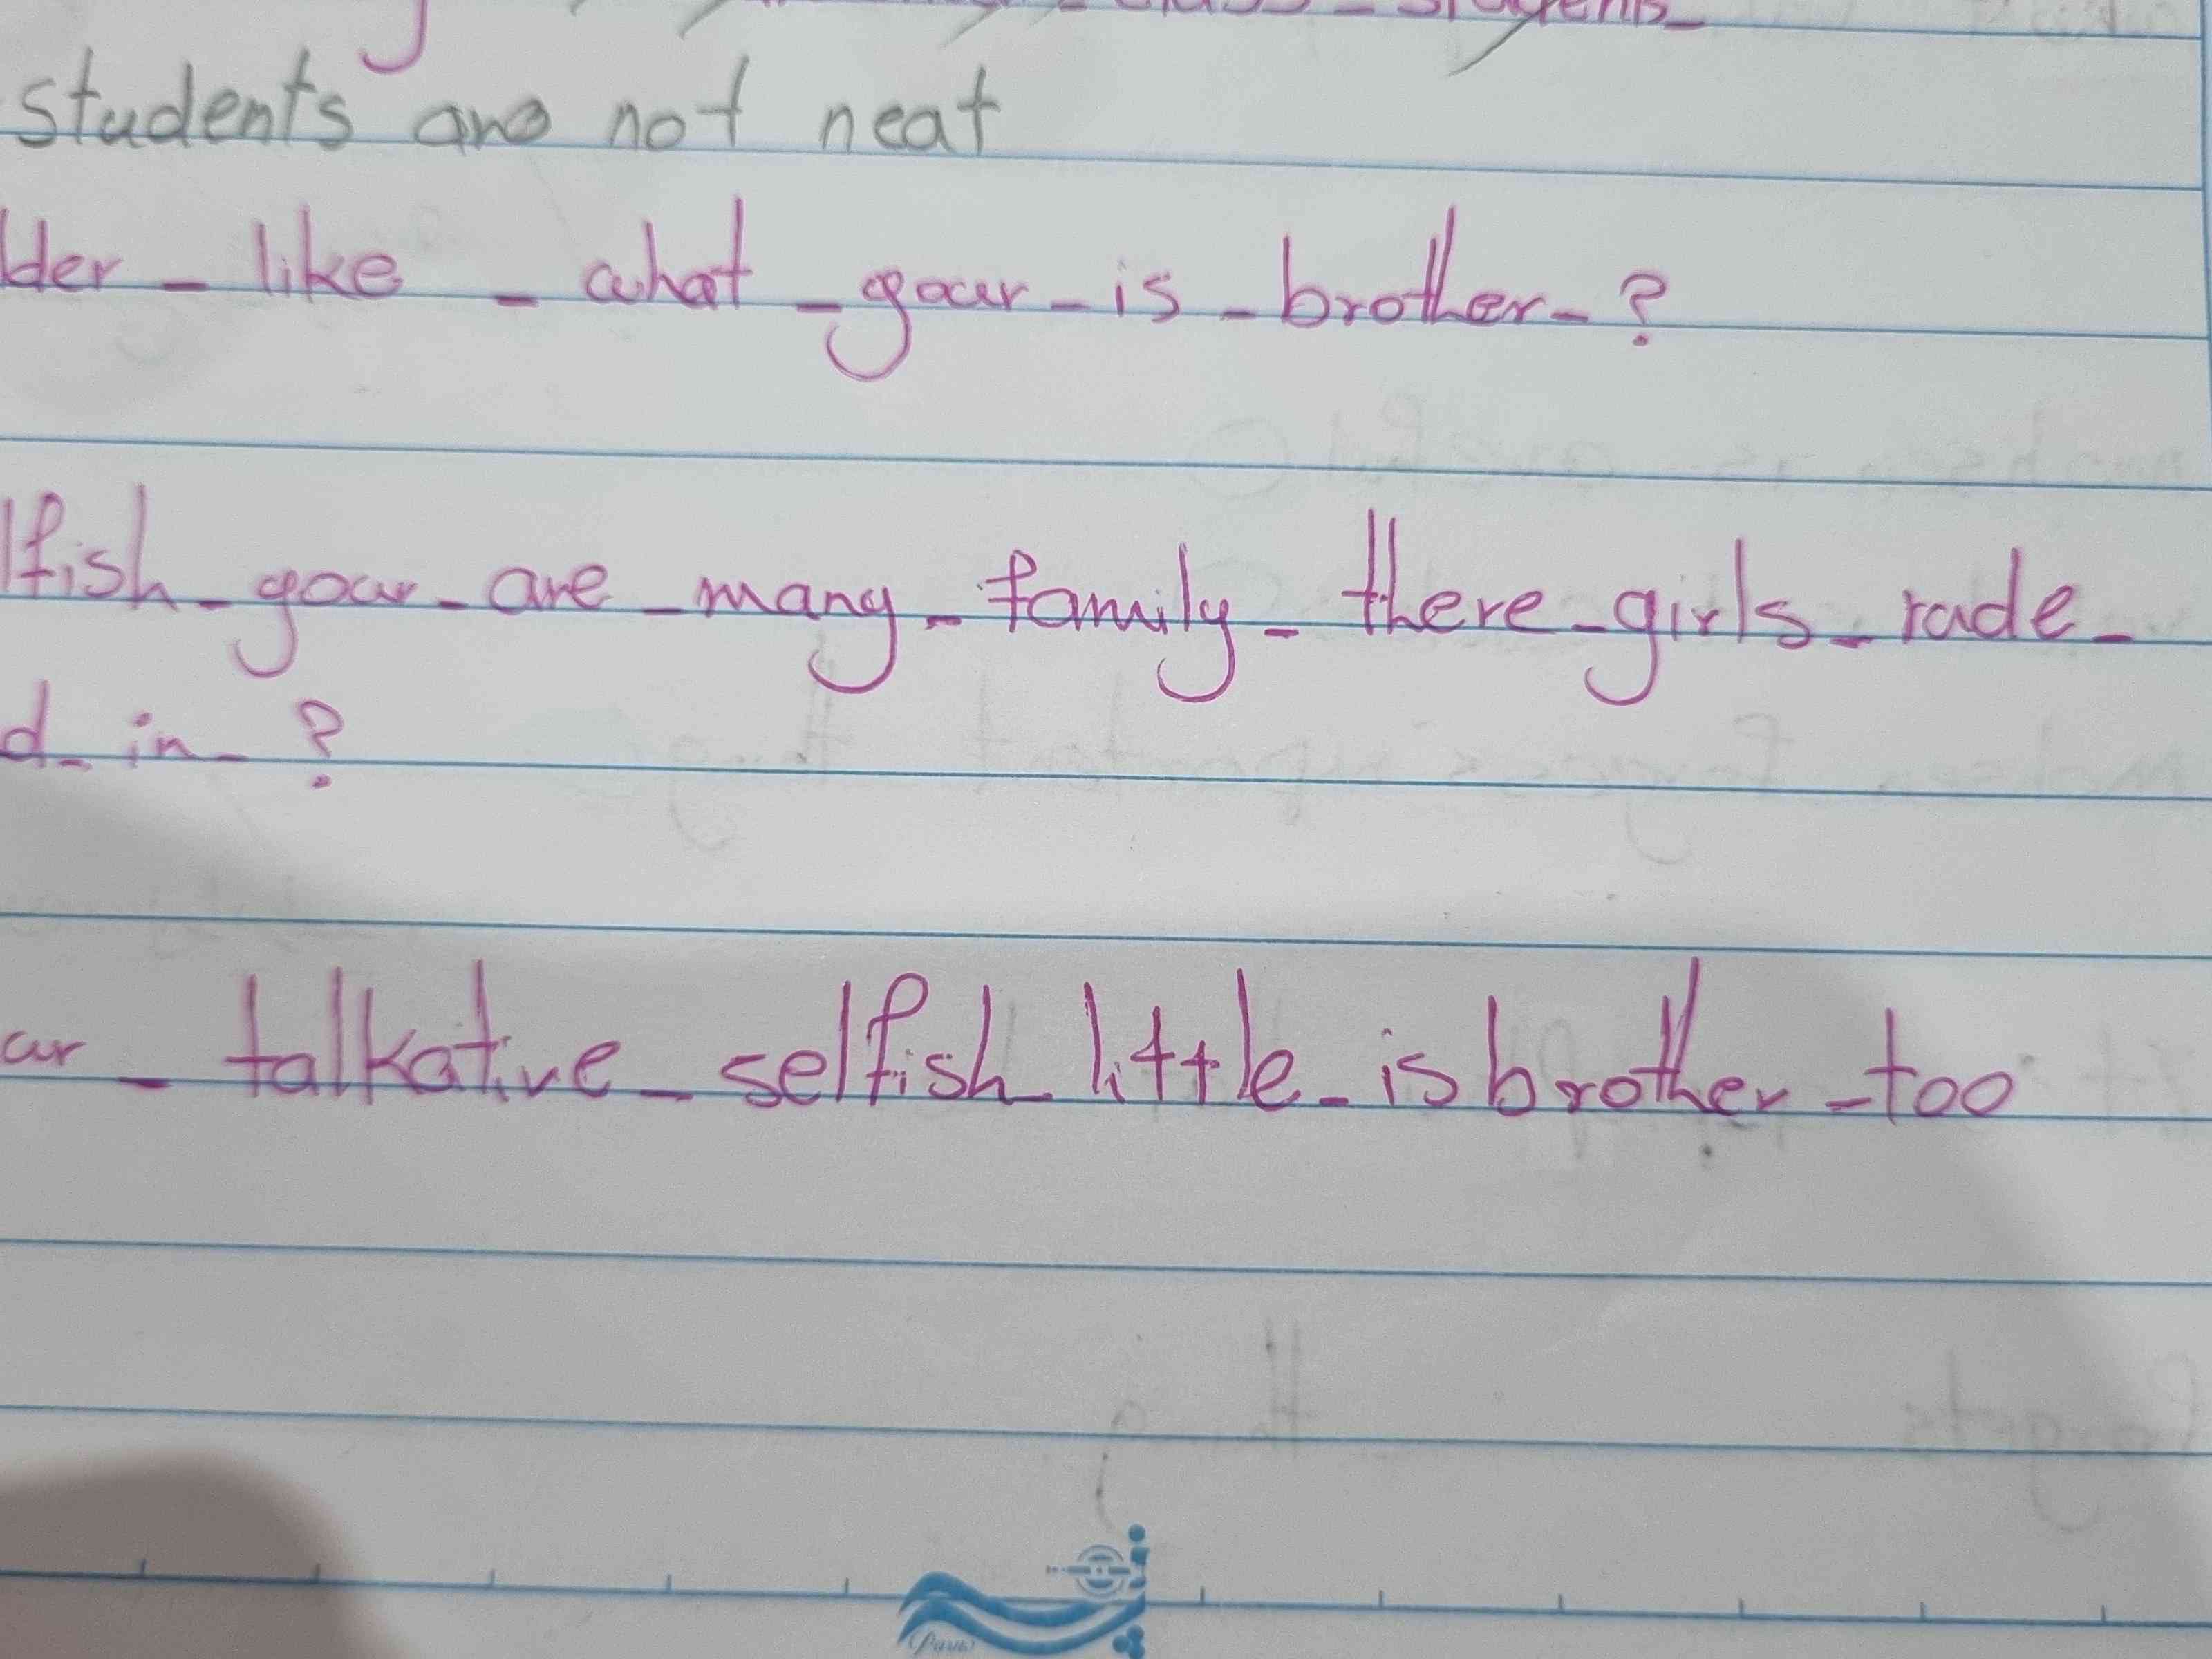 class - students -
students are not neat
lder - like - what - your - is - brother - ?
lfish - your - are - many - family - there - girls - rude -
d - in - ?
ur - talkative - selfish little - is brother - too